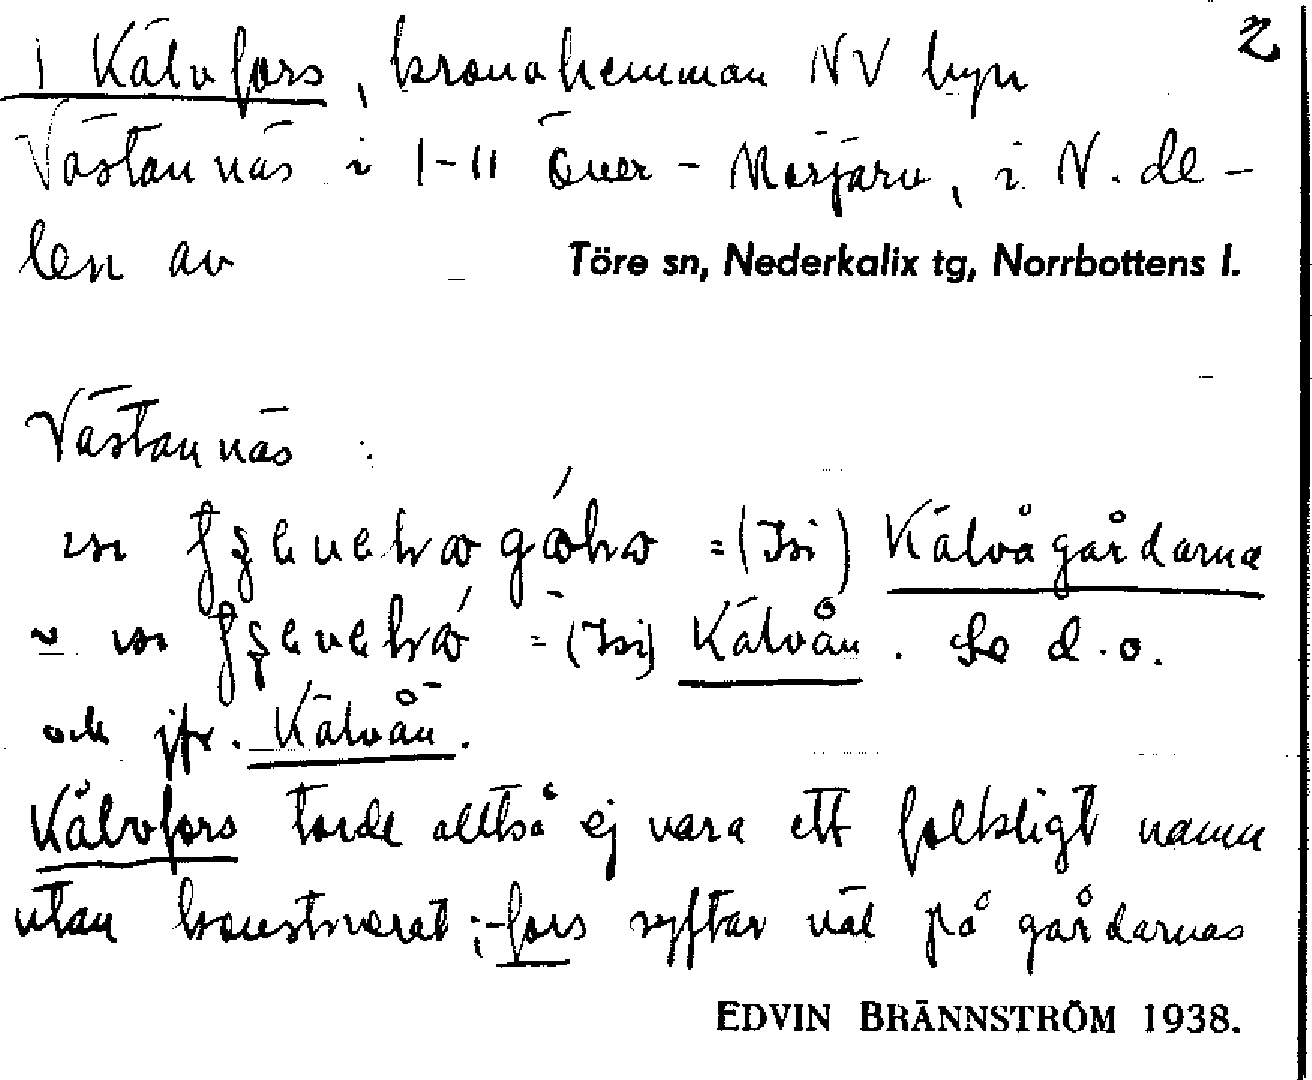 2
1 Kälvfors, kronohemman NV byn
Västannäs i 1-11 Över-Morjärv, i N. de-
len av Töre sn, Nederkalix tg, Norrbottens l.
Västannäs:
Kälvågårdarna
Kälvån. Se d.o.
och jfr. Kälvån.
Kälvfors torde alltså ej vara ett folkligt namn
utan konstruerat; -fors syftar väl på gårdarnas
EDVIN BRÄNNSTRÖM 1938.